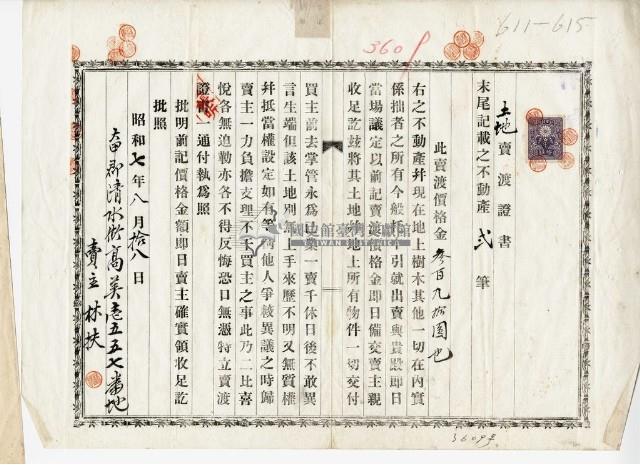 611-615
360
土地賣渡證書
末尾記載之不動產 貳 筆
此賣渡價格金 叁百九拾圓也
右之不動產幷現在地上樹木其他一切在內實
係拙者之所有今般托中引就出賣與貴殿即日
當場議定以前記賣渡價格金即日備交賣主親
收足訖玆將其土地幷地上所有物件一切交付
買主前去掌管永為己業一賣千休日後不敢異
言生端但該土地別無上手來歷不明又無質權
幷抵當權設定如有等 他人爭競異議之時歸
賣主一力負擔支理不干買主之事此乃二比喜
悅各無迫勒亦各不得反悔恐口無憑特立賣渡
證書一通付執為照
批明前記價格金額即日賣主確實領收足訖
批照
昭和七年八月拾八日
大甲郡清水街高美壱五五七番地
賣主 林扶
國史館臺灣文獻館
TAIWAN HISTORICA
3609